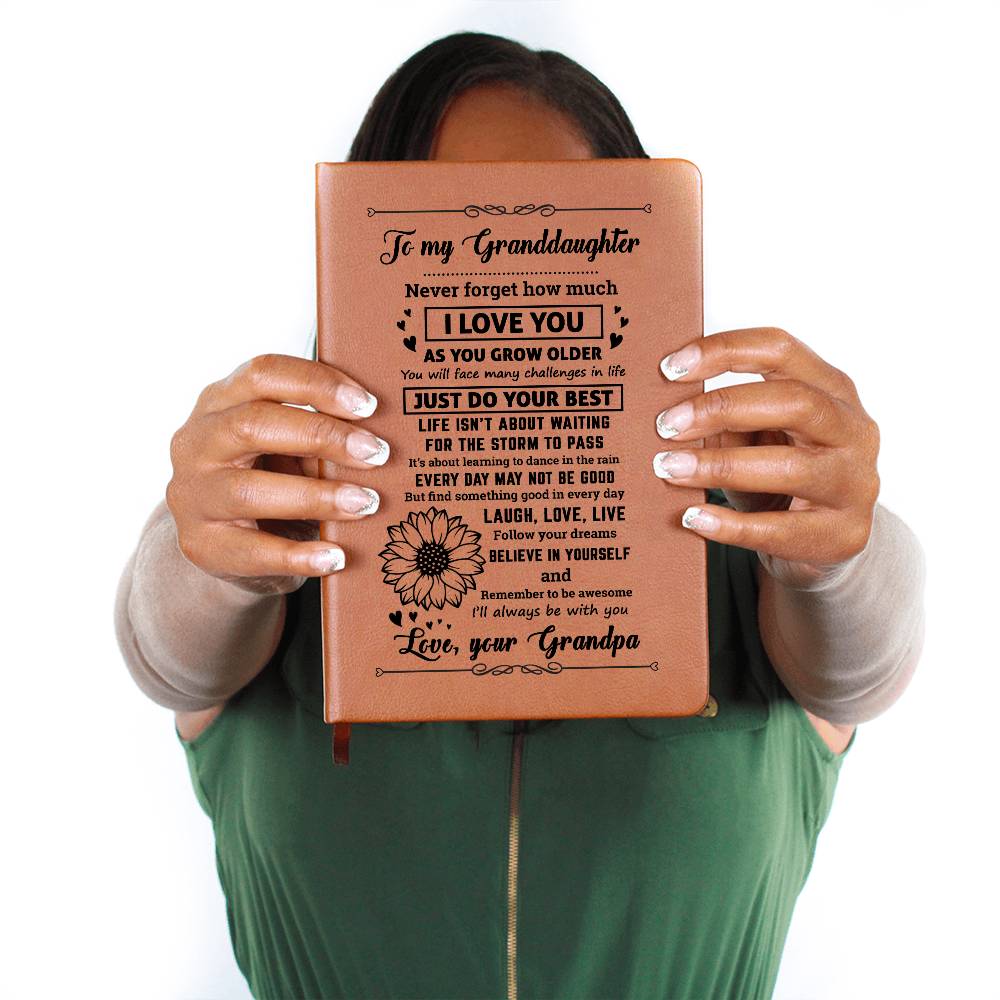 To my Granddaughter
Never forget how much
I LOVE YOU
AS YOU GROW OLDER
You will face many challenges in life
JUST DO YOUR BEST
LIFE ISN'T ABOUT WAITING
FOR THE STORM TO PASS
It's about learning to dance in the rain
EVERY DAY MAY NOT BE GOOD
But find something good in every day
LAUGH, LOVE, LIVE
Follow your dreams
BELIEVE IN YOURSELF
and
Remember to be awesome
I'll always be with you
Love, your Grandpa